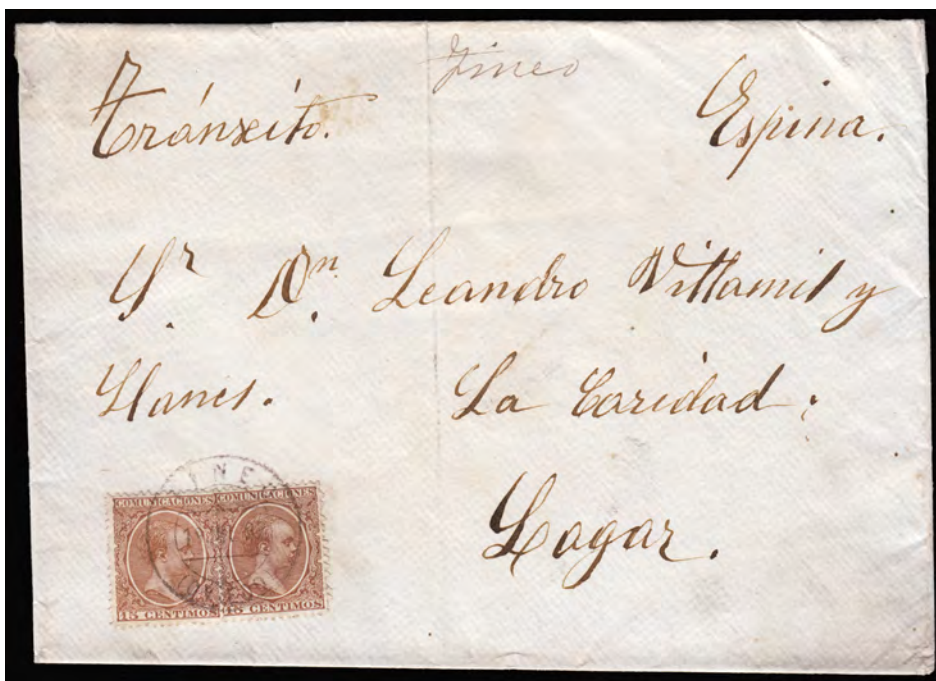 Tineo
Tránxito. Espina.
Sr. Dn. Leandro Villamil y
Llanes. La Caridad.
Lagar.
COMUNICACIONES COMUNICACIONES
15 CENTIMOS 15 CENTIMOS